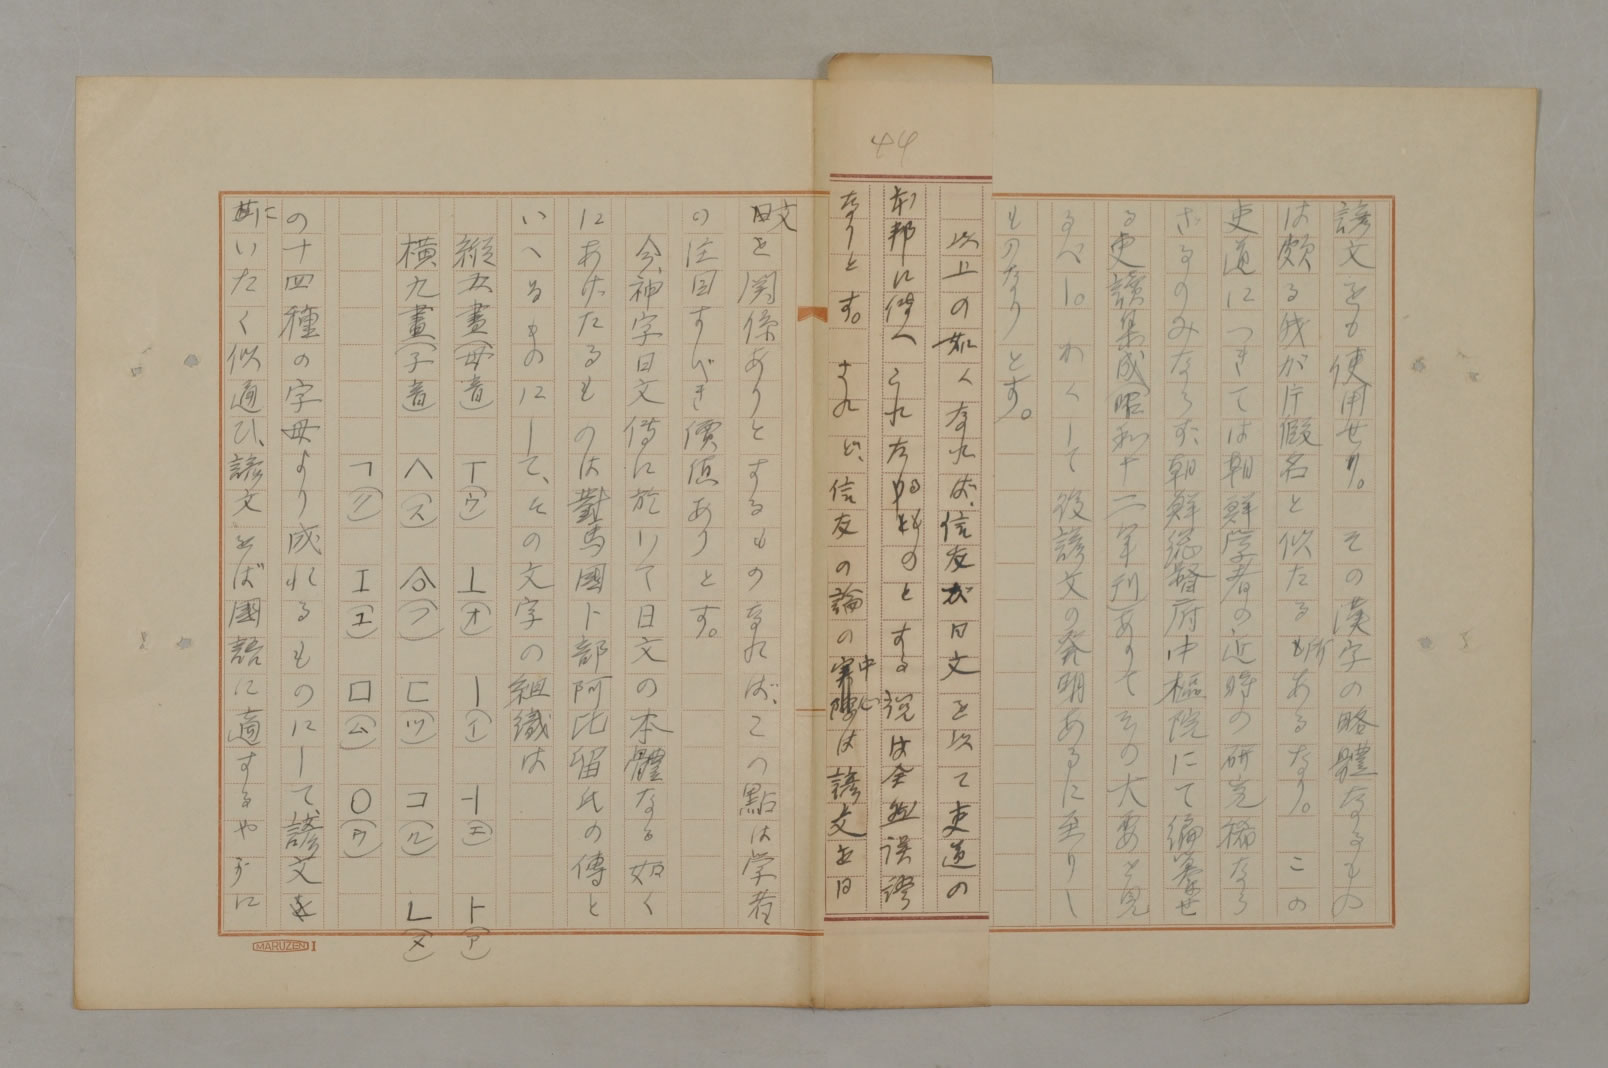 44
諺文をも使用せり。その漢字の略體なるもの
は頗る我が片假名と似たるものあるなり。この
吏道につきては朝鮮学者の近時の研究稀なら
ざるのみならず、朝鮮総督府中樞院にて編纂せ
る吏讀集成(昭和十二年刊)ありてその大要を見
るべし。かくして後諺文の発明あるに至りし
ものなりとす。
以上の如くなれば、信友が日文を以て吏道の
本邦に傳へられたるものとする説は全然誤謬
なりとす。されど、信友の論の中心は諺文を日
文と関係ありとするものなれば、この點は学者
の注目すべき價値ありとす。
今、神字日文傳に於いて日文の本體なる如く
にあげたるものは對馬國卜部阿比留氏の傳と
いへるものにして、その文字の組織は
縦五畫(母音) ㅜ(ウ) ㅗ(オ) ㅣ(イ) ㅓ(エ) ㅏ(ア)
横九畫(子音) ㅅ(ス) (フ) ㄷ(ツ) コ(ル) ㄴ(ヌ)
ㄱ(ク) 工(ユ) ㅁ(ム) ㅇ(ウ)
の十四種の字母より成れるものにして、諺文と
甚にいたく似通ひ、諺文をば國語に適するやうに
MARUZEN I